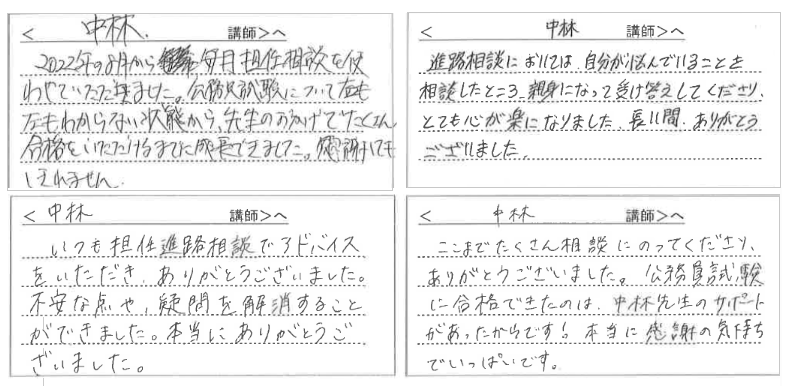 < 中林. 講師>へ
2022年の8月から毎月担任相談を使
わせていただきました。公務員試験について右も
左もわからない状態から、先生のおかげでたくさん
合格をいただけるまでに成長できました。感謝しても
しきれません.
< 中林 講師>へ
進路相談においては、自分が悩んでいることを
相談したところ、親身になって受け答えしてくださり、
とても心が楽になりました。長い間、ありがとう
ございました.
< 中林 講師>へ
いつも担任進路相談でアドバイス
をいただき、ありがとうございました。
不安な点や、疑問を解消すること
ができました。本当にありがとうご
ざいました。
< 中林 講師>へ
ここまでたくさん相談にのってくださり、
ありがとうございました。公務員試験
に合格できたのは、中林先生のサポート
があったからです! 本当に感謝の気持ち
でいっぱいです。